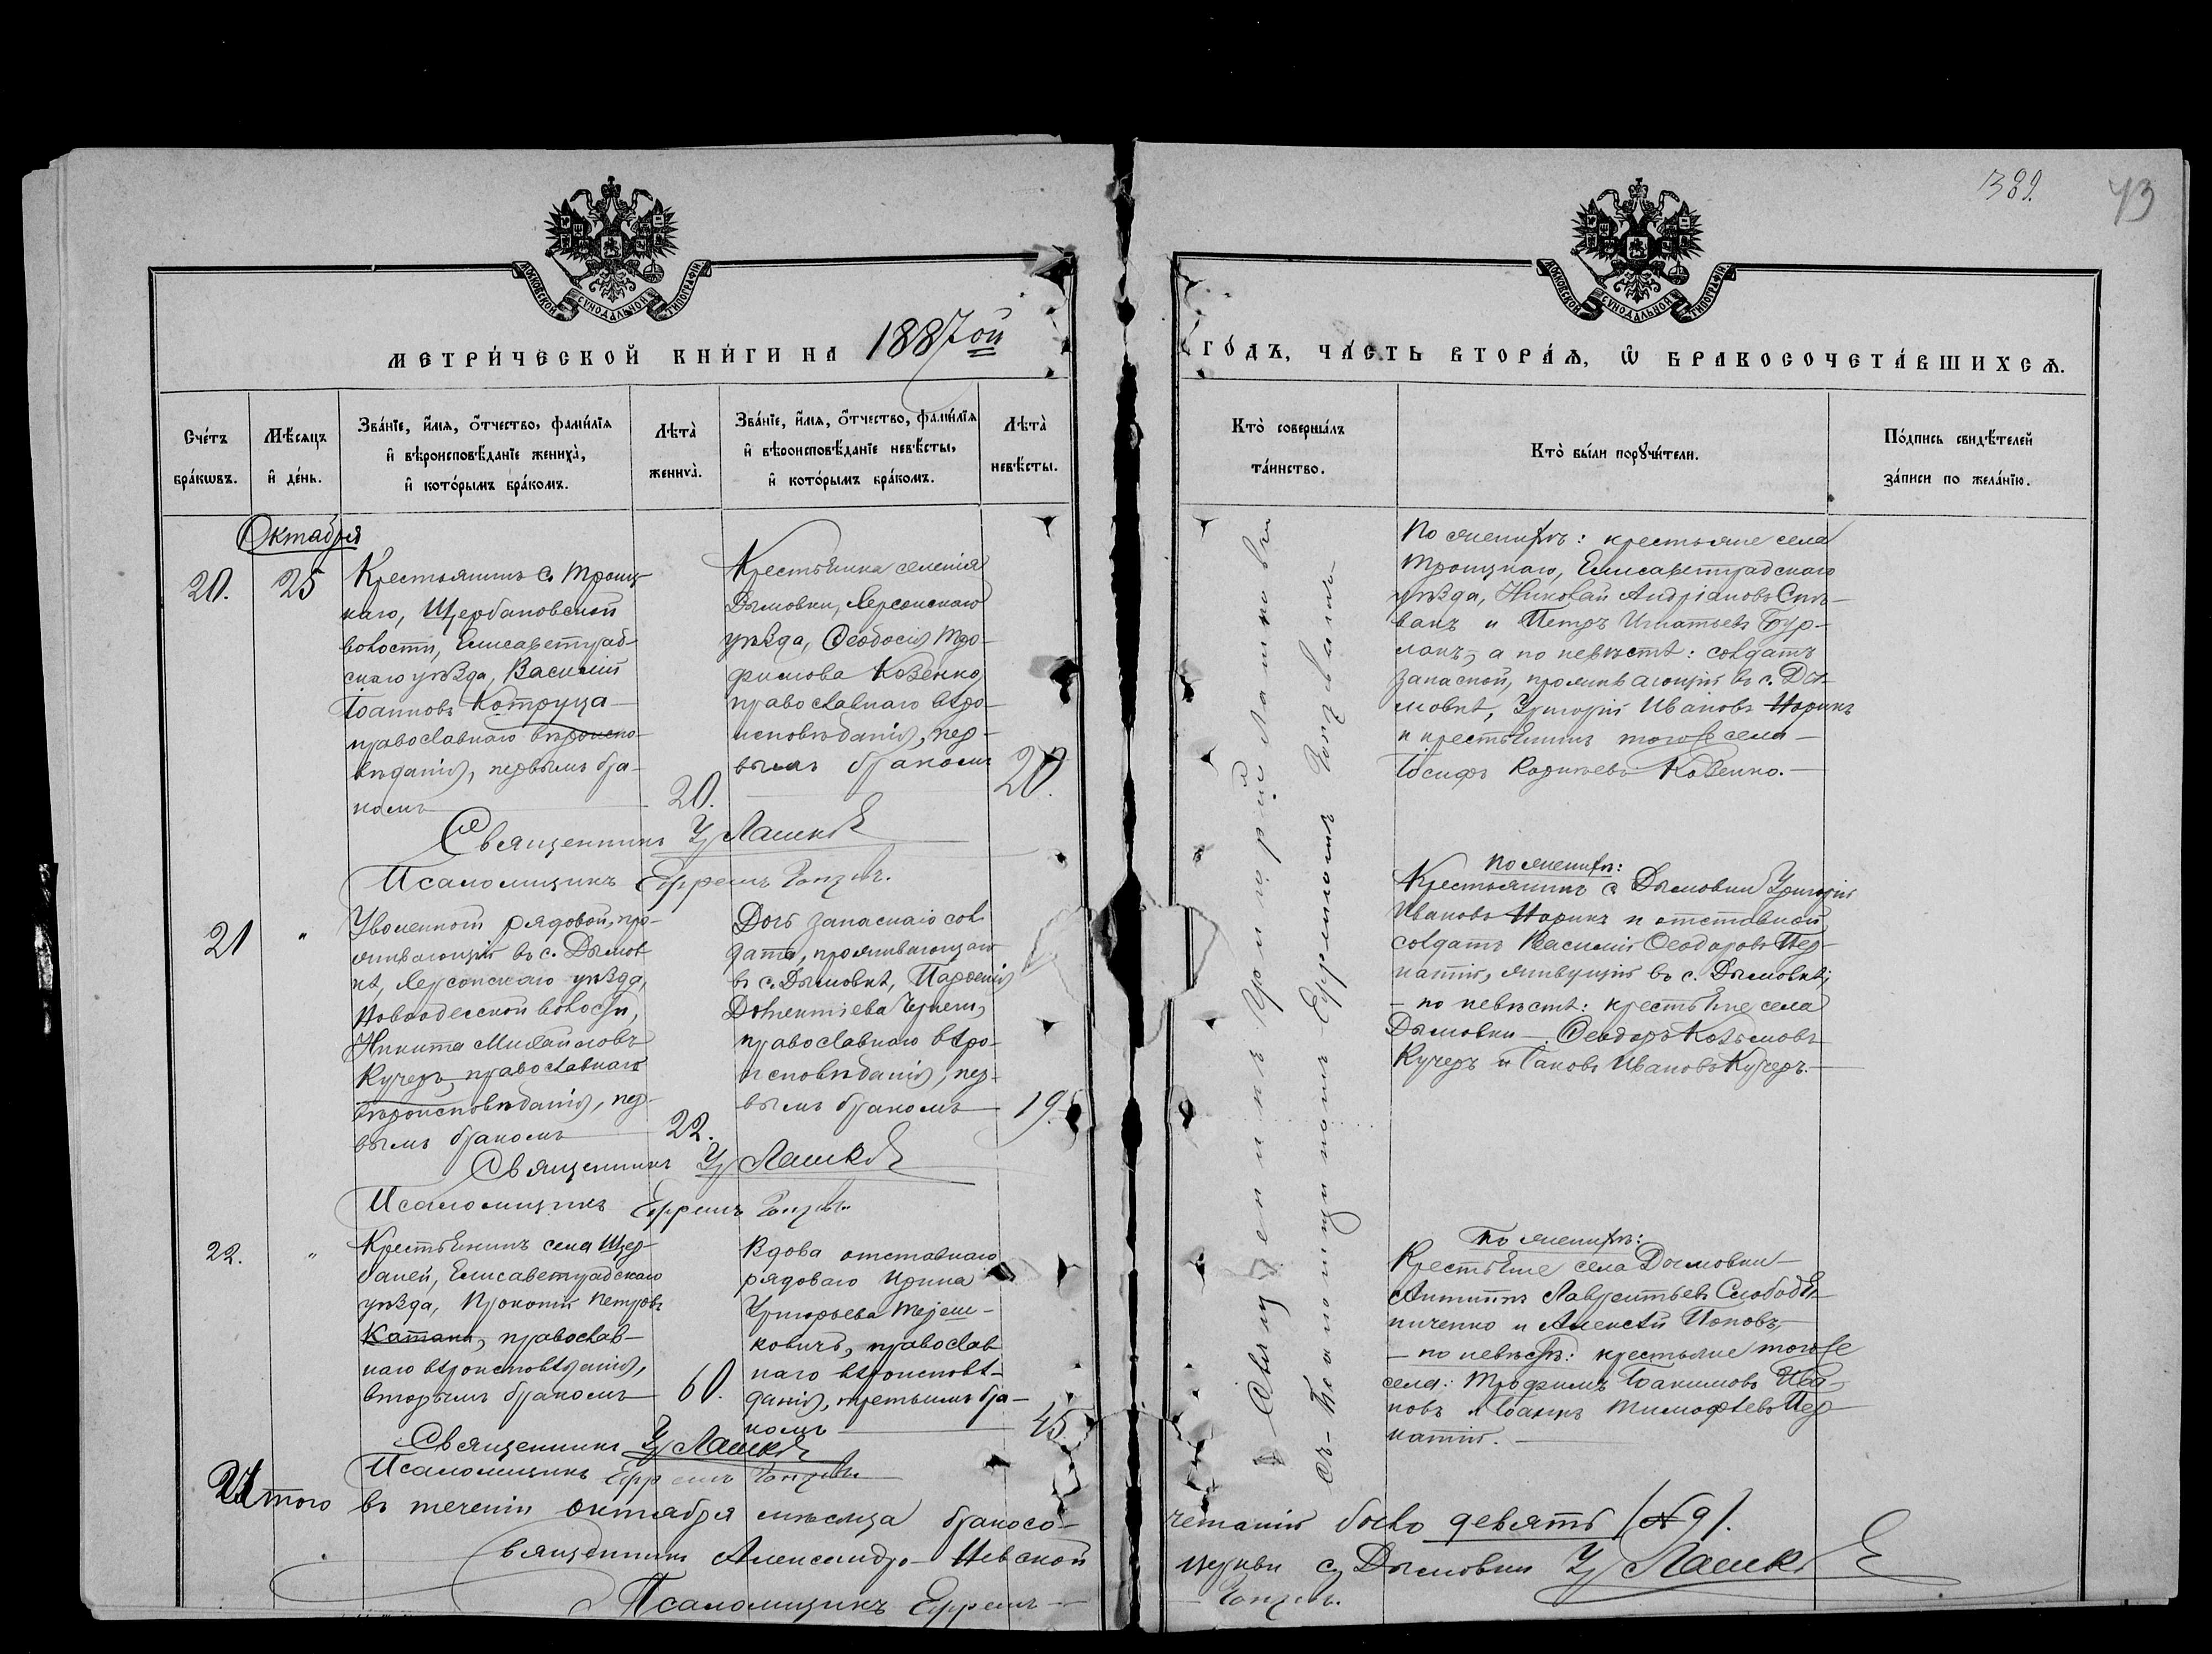 389.
43
МОСКОВСКОЙ СѴНОДАЛЬНОЙ ТИПОГРАФІИ
МОСКОВСКОЙ СѴНОДАЛЬНОЙ ТИПОГРАФІИ
МЕТРИ́ЧЕСКОЙ КНИ́ГИ НА 1887ой
ГО́ДЪ, ЧА́СТЬ ВТОРА́Ѧ, Ѡ҆ БРАКОСОЧЕТА́ВШИХСѦ.
Сче́тъ
бра́кѡвъ.
Мѣ́сяцъ
и҆ де́нь.
Зва́нїе, и҆́мѧ, ѻ҆́тчество, фами́лїѧ
и҆ вѣроисповѣ́данїе жениха̀,
и҆ кото́рымъ бра́комъ.
Лѣ́та̀
жениха̀.
Зва́нїе, и҆́мѧ, ѻ҆́тчество, фами́лїѧ
и҆ вѣроисповѣ́данїе невѣ́сты,
и҆ кото́рымъ бра́комъ.
Лѣ́та̀
невѣ́сты.
Кто̀ соверша́лъ
та́инство.
Кто̀ бы́ли порꙋчи́тели.
По́дпись свидѣ́телей
за́писи по жела́нїю.
Октабря
20.
25
Крестьянинъ с. Троиц-
каго, Щербановской
волости, Елисаветград-
скаго уѣзда, Василій
Іоанновъ Котруца
православнаго вѣроиспо-
вѣданія, первымъ бра-
комъ
20.
Крестьянка селенія
Дымовки, Херсонскаго
уѣзда, Ѳеодосія Тро-
фимова Козенко,
православнаго вѣро-
исповѣданія, пер-
вымъ бракомъ
20.
По женихѣ: крестьяне села
Троицкаго, Елисаветградскаго
уѣзда, Николай Андріановъ Спѣ-
вакъ и Петръ Игнатьевъ Бур-
лакъ, а по невѣстѣ: солдатъ
запасной, проживающій въ с. Ды-
мовкѣ, Григорій Ивановъ Норикъ
и крестьянинъ тогоже села
Іосифъ Козенко.
Священникъ Гр Лашков
Псаломщикъ Ефремъ
21
"
Уволенной рядовой, про-
живающій въ с. Дымов-
кѣ, Херсонскаго уѣзда,
Новоодесской волости,
Никита Михайловъ
Кучеръ, православнаго
вѣроисповѣданія, пер-
вымъ бракомъ
22.
Дочь запаснаго сол-
дата, проживающаго
въ с. Дымовкѣ, Парѳенія
православнаго вѣро-
исповѣданія, пер-
вымъ бракомъ
19.
По женихѣ:
Крестьянинъ с Дымовки Григорій
Ивановъ Норикъ и отставной
солдатъ Василій Ѳеодоровъ Пер-
натій, живущій въ с. Дымовкѣ;
— по невѣстѣ: крестьяне села
Дымовки — Ѳеодоръ Козьмовъ
Кучеръ и Іаковъ Ивановъ Кучеръ.
Священникъ Гр Лашков
Псаломщикъ Ефремъ
22.
"
Крестьянинъ села Щер-
баней, Елисаветградскаго
уѣзда, Прокопій Петровъ
Катана, православ-
наго вѣроисповѣданія,
вторымъ бракомъ
60.
Вдова отставнаго
рядоваго Ирина
Григорьева Тереш-
ковичъ, православ-
наго вѣроисповѣ-
данія, третьимъ бра-
комъ
45.
По женихѣ:
Крестьяне села Дымовки —
Антипъ Лаврентьевъ Слободя-
ниченко и Алексѣй Поповъ,
— по невѣстѣ: крестьяне тогоже
села: Трофимъ Іоакимовъ Ива-
новъ и Іоаннъ Тимофѣевъ Пер-
натій.
Священникъ Гр Лашков
Псаломщикъ Ефремъ
Священникъ Григорій Лашковъ
съ псаломщикомъ Ефремомъ
Итого въ теченіи октября мѣсяца бракосо-
четаній было девять (№ 9).
Священникъ Александро-Невской
церкви с. Дымовки Гр Лашков
Псаломщикъ Ефремъ